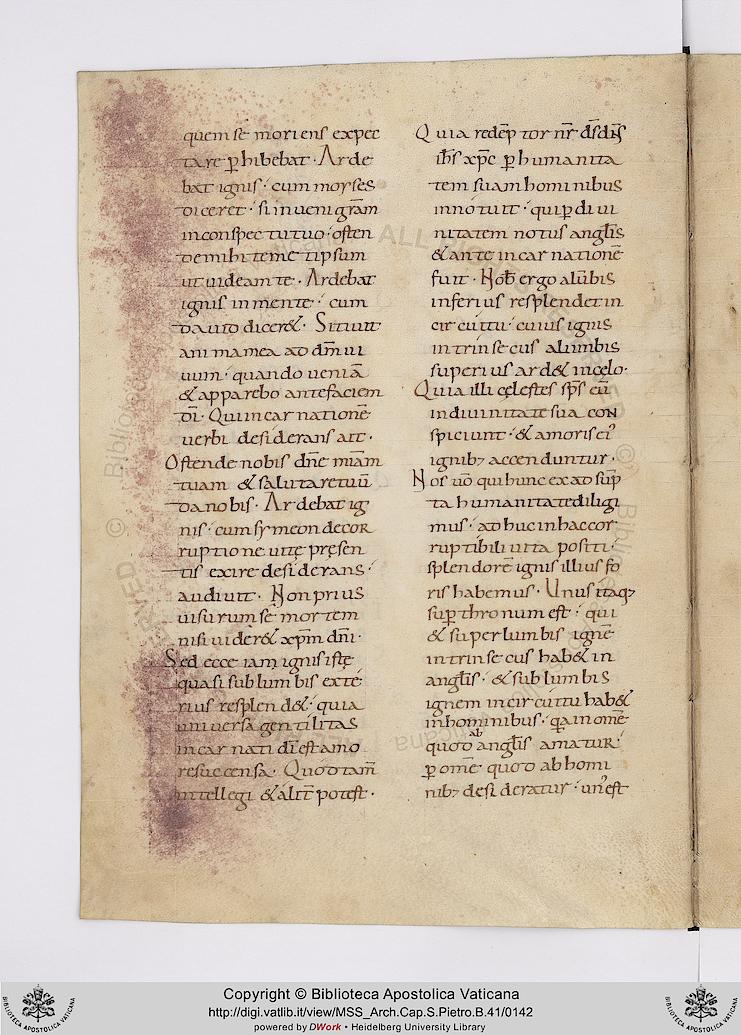 quem se moriens expec
tare p̄hibebat · Arde
bat ignis · cum moyses
diceret · si inveni gr̄am
in conspectu tuo · osten
de mihi temetipsum
ut videam te · Ardebat
ignis in mente · cum
david dicer& · Sitivit
anima mea ad dm̄ vi
vum · quando veniā
& apparebo ante faciem
dī · Qui incarnationē
verbi desiderans ait ·
Ostende nobis dn̄e mīam
tuam & salutare tuū
da nobis · Ardebat ig
nis · cum symeon decor
ruptione vitę pręsen
tis exire desiderans ·
audivit · Non prius
visurum se mortem
nisi vider& xp̄m dn̄i ·
Sed ecce iam ignis istę
quasi sub lumbis exte
rius resplend& · quia
universa gentilitas
incarnati dī est amo
re succensa · Quod tam̄
intellegi & alit̄ potest ·
Quia redēptor nr̄ d̄s dn̄s
ih̄s xp̄c p̄ humanita
tem suam hominibus
innotuit · qui p̄ divi
nitatem notus angl̄is
& ante incarnationē
fuit · Nob̄ ergo a lūbis
inferius resplendet in
circuitu · cuius ignis
intrinsecus a lūmbis
superius ard& in celo ·
Quia illi cęlestes sp̄s eū
in divinitate sua con
spiciunt · & amoris ei'
ignib; accenduntur ·
Nos vō qui hunc ex adsūp
ta humanitate diligi
mus · adhuc in hac cor
ruptibili vita positi ·
splendorē ignis illius fo
ris habemus · Unus itaq;
sup̄ thronum est · qui
& super lumbis ignē
intrinsecus hab& in
angl̄is · & sub lumbis
ignem in circuitu hab&
in hominibus · q̄a in omē
quod ab angl̄is amatur ·
p̄ omē quod ab homi
nib; desideratur · un' est
Copyright © Biblioteca Apostolica Vaticana
http://digi.vatlib.it/view/MSS_Arch.Cap.S.Pietro.B.41/0142
powered by DWork • Heidelberg University Library